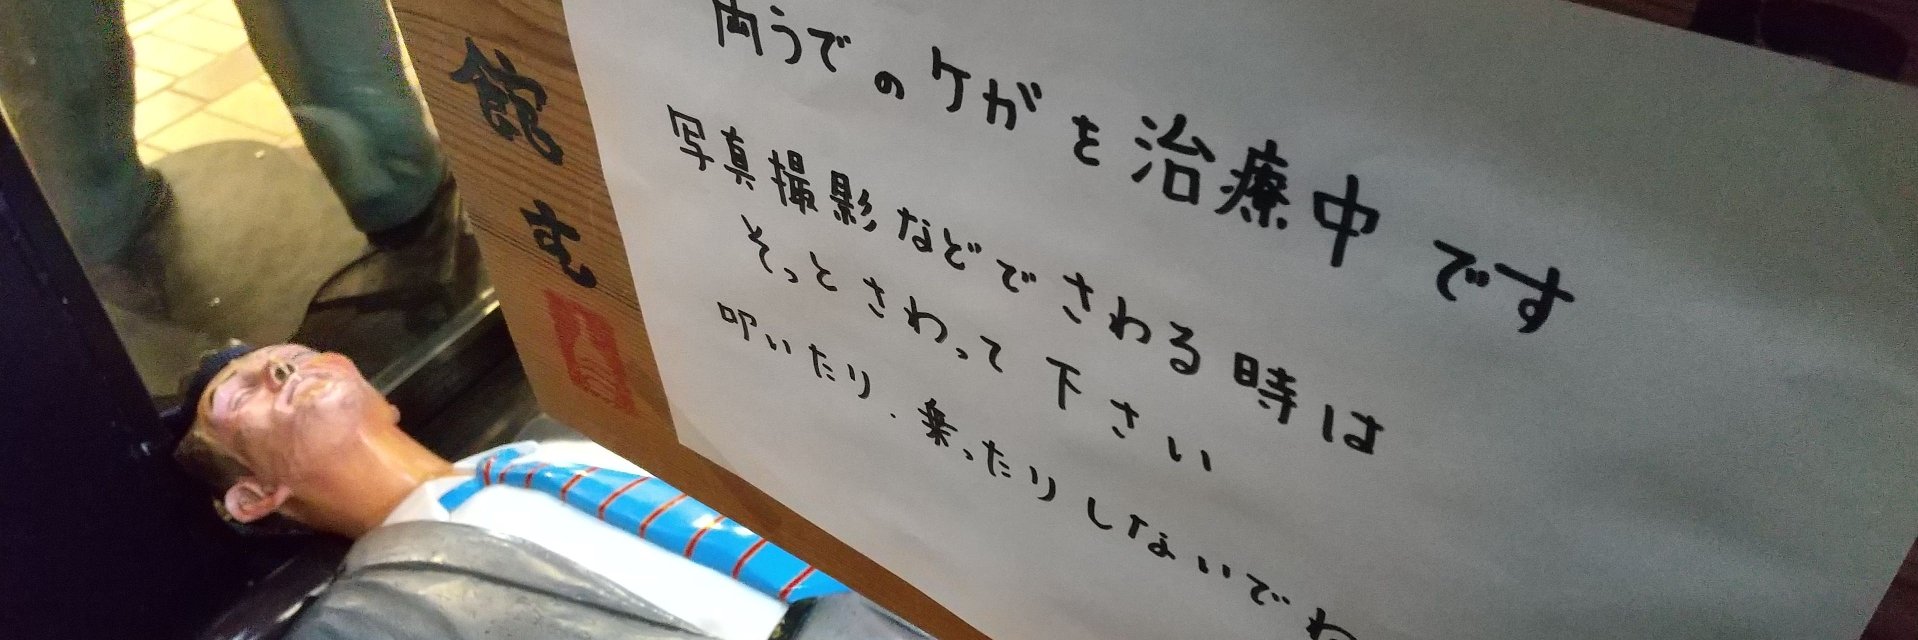 両うでのケガを治療中です
写真撮影などでさわる時は
そっとさわって下さい
叩いたり、乗ったりしないでね
館主